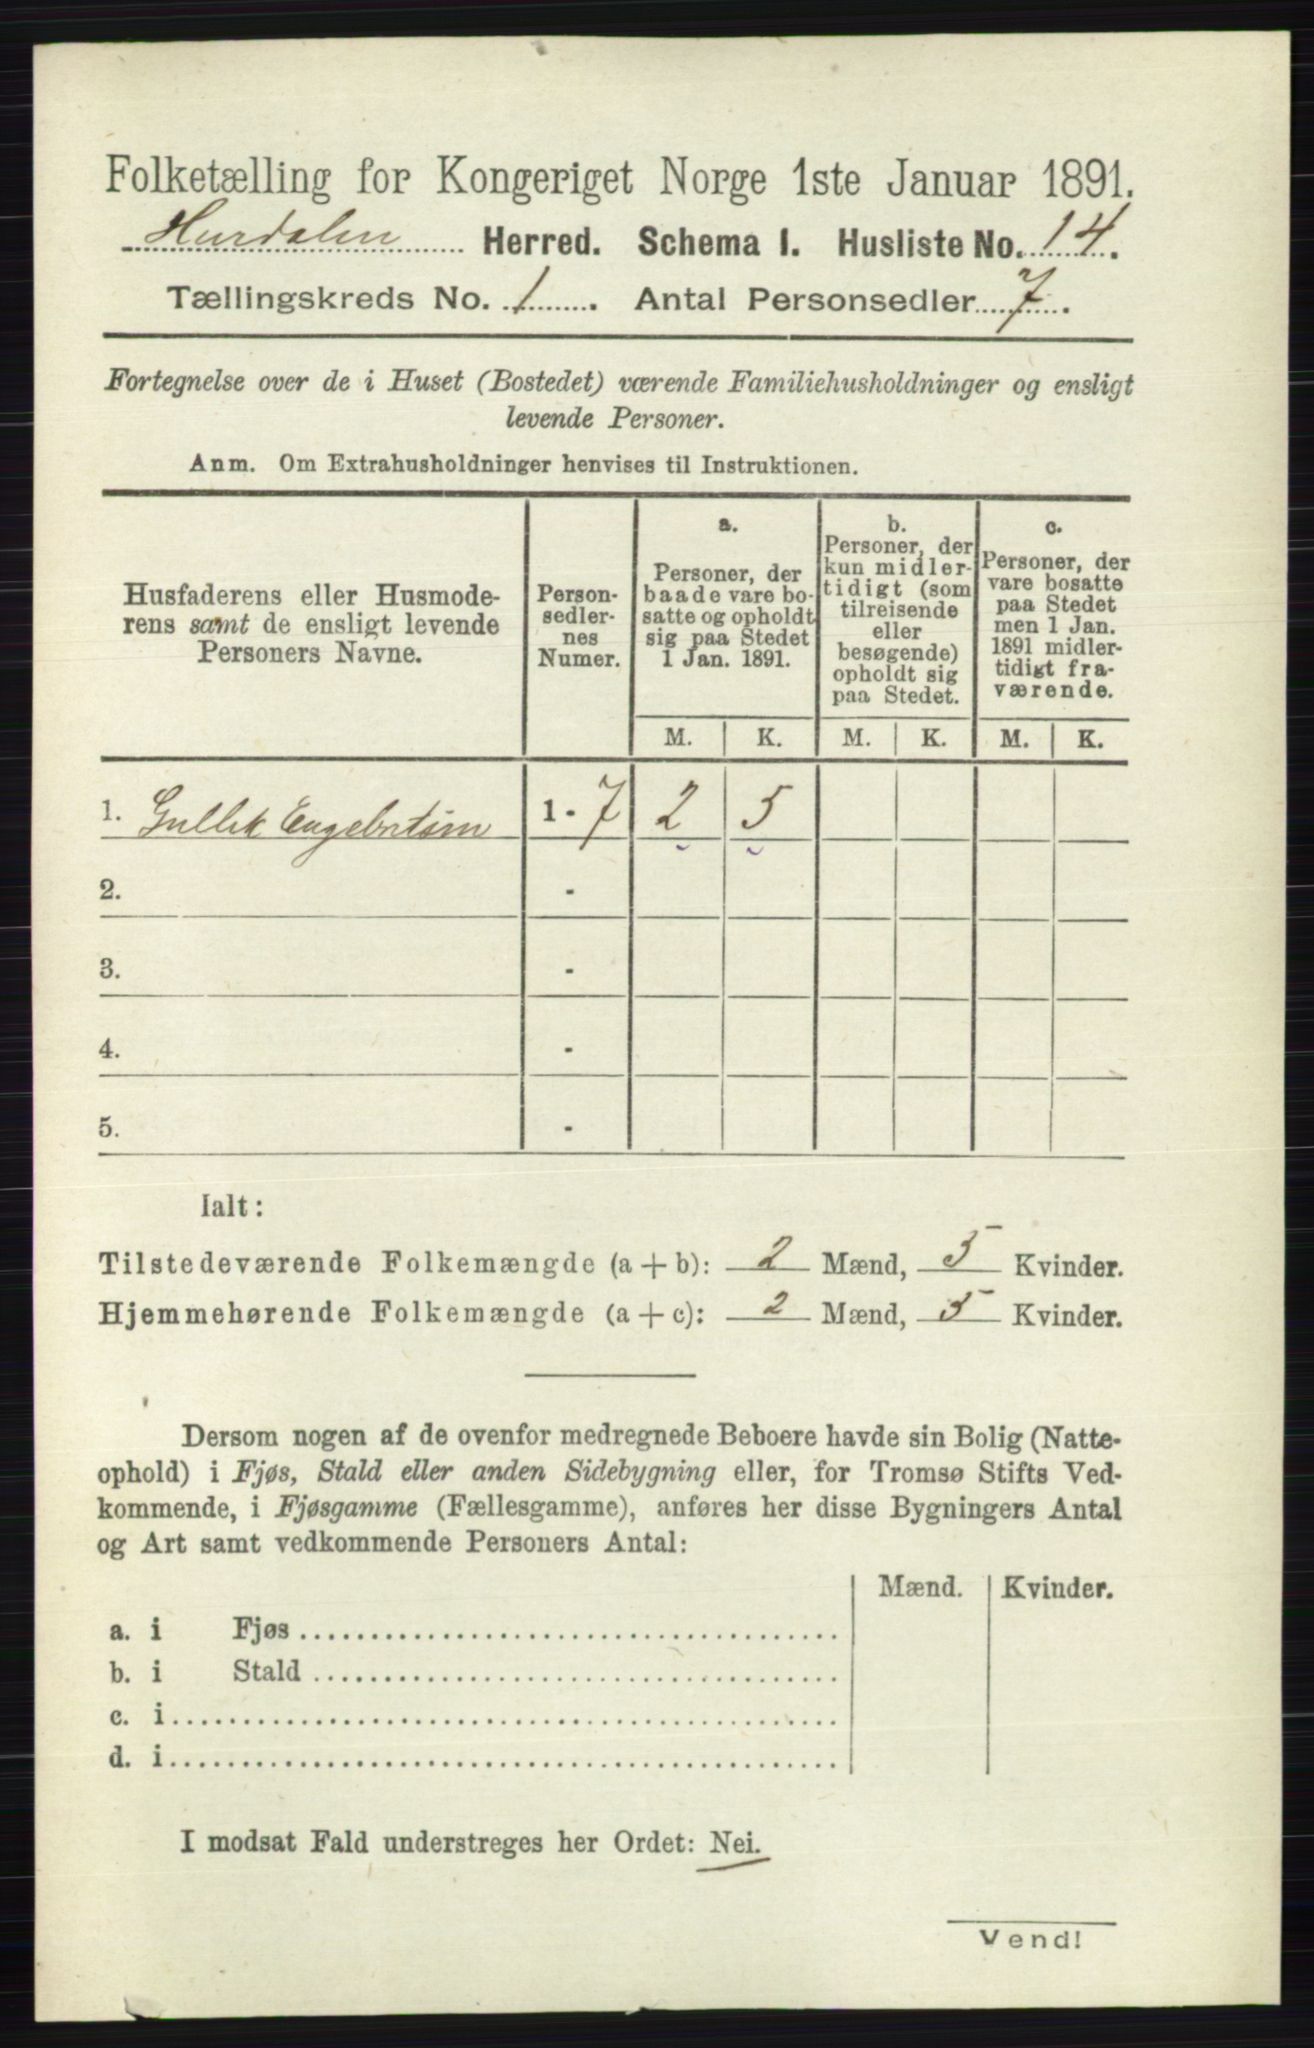 Folketælling for Kongeriget Norge 1ste Januar 1891.
Hurdalen Herred. Schema I. Husliste No. 14.
Tællingskreds No. 1. Antal Personsedler 7.
Fortegnelse over de i Huset (Bostedet) værende Familiehusholdninger og ensligt
levende Personer.
Anm. Om Extrahusholdninger henvises til Instruktionen.
Husfaderens eller Husmode-
rens samt de ensligt levende
Personers Navne.
Person-
sedler-
nes
Numer.
a.
Personer, der
baade vare bo-
satte og opholdt
sig paa Stedet
1 Jan. 1891.
b.
Personer, der
kun midler-
tidigt (som
tilreisende
eller
besøgende)
opholdt sig
paa Stedet.
c.
Personer, der
vare bosatte
paa Stedet
men 1 Jan.
1891 midler-
tidigt fra-
værende.
M. K. M. K. M. K.
1. Gullik Engebretsen 1 - 7 2 5
2. -
3. -
4. -
5. -
Ialt:
Tilstedeværende Folkemængde (a + b): 2 Mænd, 5 Kvinder.
Hjemmehørende Folkemængde (a + c): 2 Mænd, 5 Kvinder.
Dersom nogen af de ovenfor medregnede Beboere havde sin Bolig (Natte-
ophold) i Fjøs, Stald eller anden Sidebygning eller, for Tromsø Stifts Ved-
kommende, i Fjøsgamme (Fællesgamme), anføres her disse Bygningers Antal
og Art samt vedkommende Personers Antal:
Mænd. Kvinder.
a. i Fjøs
b. i Stald
c. i
d. i
I modsat Fald understreges her Ordet: Nei.
Vend!